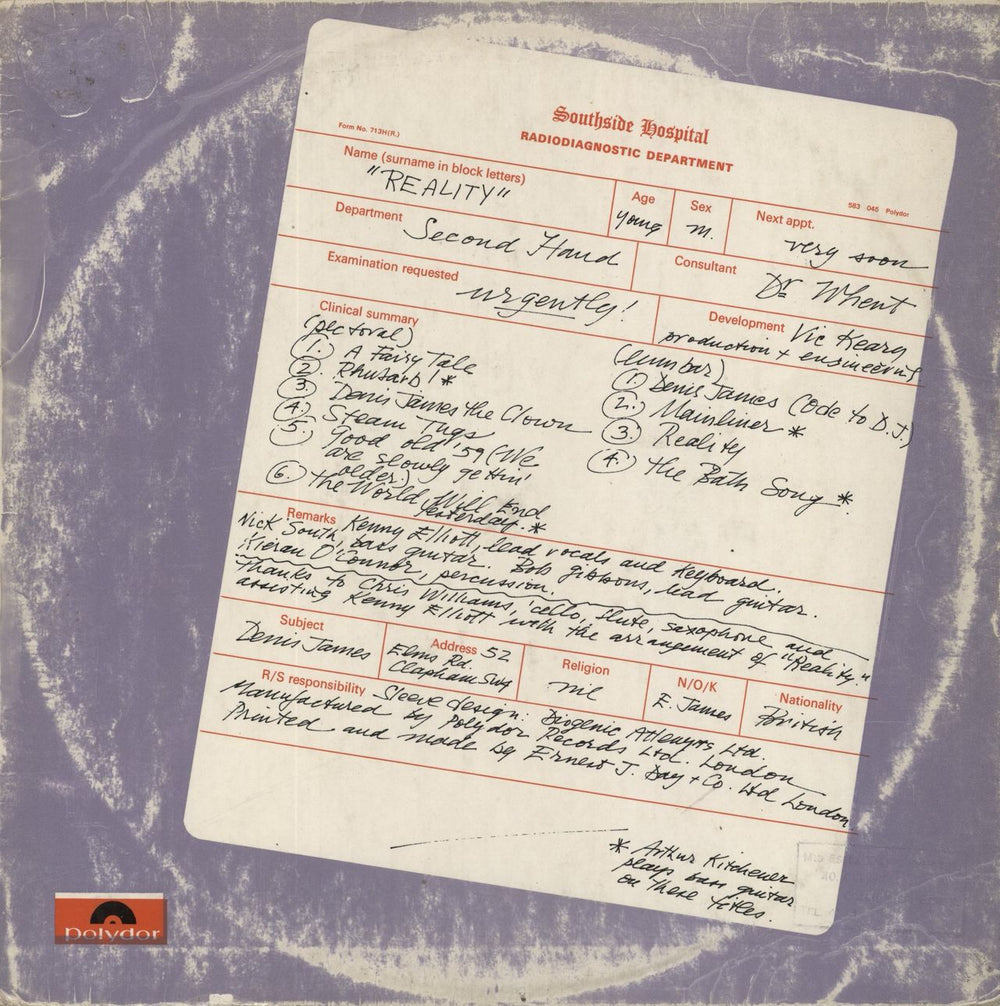 Southside Hospital
RADIODIAGNOSTIC DEPARTMENT
Form No. 713H(R.)
583 045 Polydor
Name (surname in block letters)
"REALITY"
Age
young
Sex
m.
Next appt.
very soon
Department
Second Hand
Consultant
Dr Whent
Examination requested
urgently!
Development Vic Keary
production + engineering
Clinical summary
(pectoral)
1. A Fairy Tale
2. Rhubarb! *
3. Denis James the Clown
4. Steam Tugs
5. Good old '59 (We
are slowly gettin'
older.)
6. the World Will End
Yesterday. *
(lumbar)
1. Denis James (Ode to D.J.)
2. Mainliner *
3. Reality
4. the Bath Song *
Remarks Kenny Elliott, lead vocals and keyboard.
Nick South, bass guitar. Bob Gibbons, lead guitar.
Kieran O'Connor, percussion.
Thanks to Chris Williams, 'cello, flute, saxophone and
assisting Kenny Elliott with the arrangement of "Reality."
Subject
Denis James
Address 52
Elms Rd.
Clapham SW4
Religion
nil
N/O/K
E. James
Nationality
British
R/S responsibility Sleeve design: Diogenic Attempts Ltd.
Manufactured by Polydor Records Ltd. London
Printed and made by Ernest J. Day + Co. Ltd London
* Arthur Kitchener
plays bass guitar
on these titles.
polydor